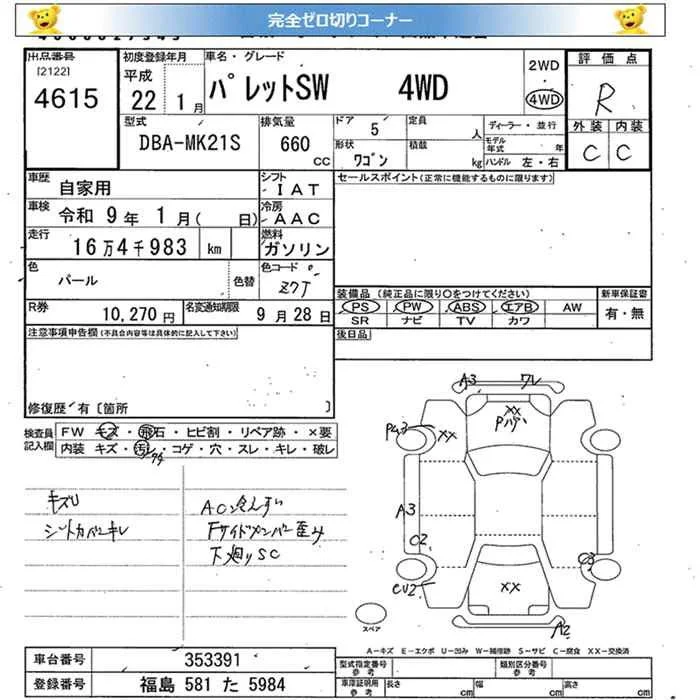 完全ゼロ切りコーナー
出品番号
[2122]
4615
初度登録年月
平成
22 1月
車名・グレード
パレットSW 4WD
2WD
4WD
評価点
R
外装 内装
C C
型式
DBA-MK21S
排気量
660 CC
ドア 5
形状 ワゴン
定員 人
積載 kg
ディーラー・並行
モデル年式 年
ハンドル 左・右
車歴 自家用
シフト
IAT
セールスポイント(正常に機能するものに限ります)
車検 令和 9年 1月( 日)
冷房
AAC
走行 16万4千983 km
燃料
ガソリン
色 パール
色替
色コード
Z7T
R券 10,270円
名変通知期限 9月28日
装備品 (純正品に限り○をつけてください)
新車保証書
PS PW ABS エアB AW
有・無
SR ナビ TV カワ
後日品
注意事項申告欄(不具合内容等は具体的に記入して下さい)
修復歴 有〔箇所 〕
検査員記入欄
FW キズ・飛石・ヒビ割・リペア跡・×要
内装 キズ・汚レ・コゲ・穴・スレ・キレ・破レ
キズU
シートカバーキレ
AC冷えず
Fサイドメンバー歪み
下廻りSC
A3 ワレ
XX
Pハゲ
XX
A3
C2
C3
CU2
XX
A2
スペア
A-キズ E-エクボ U-凹み W-補修跡 S-サビ C-腐食 XX-交換済
車台番号 353391
型式指定番号 参考
類別区分番号 参考
登録番号 福島 581 た 5984
車庫証明用 参考
長さ cm 幅 cm 高さ cm